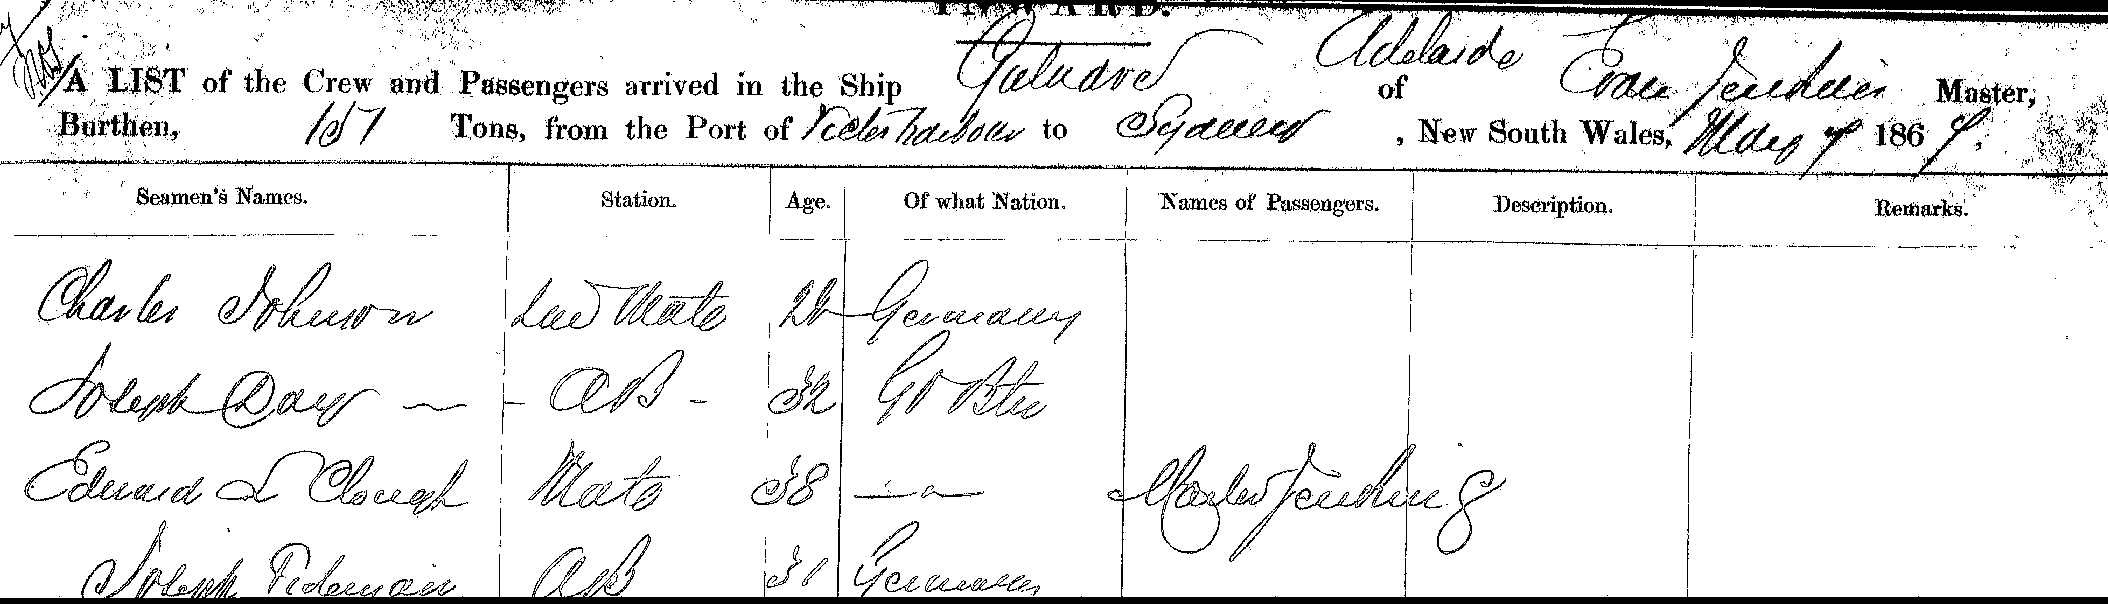 INWARD.
A LIST of the Crew and Passengers arrived in the Ship of Adelaide Evan Jenkins Master,
Burthen, 157 Tons, from the Port of Victor harbour to Sydney, New South Wales, 7 1867.
Seamen's Names. Station. Age. Of what Nation. Names of Passengers. Description. Remarks.
Charles Johnson 2nd Mate 22 Germany
Joseph Day AB 32 Gt Btn
Edward L Clough Mate 38 —〃— Jenkins
Joseph Tideman AB 31 Germany